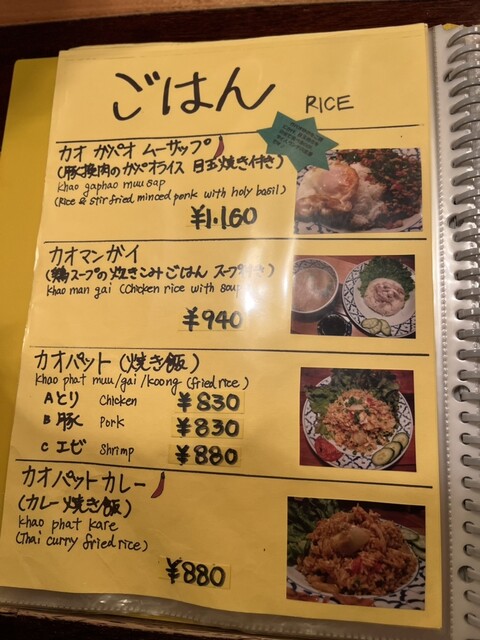 ごはん RICE
カオ ガパオ ムーサップ
(豚挽肉のガパオライス 目玉焼き付き)
khao gaphao muu sap
(Rice & stir fried minced pork with holy basil)
¥1.160
カオマンガイ
(鶏スープの炊きこみごはん スープ付き)
khao man gai (Chicken rice with soup
¥940
カオパット (焼き飯)
khao phat muu/gai/koong (fried rice)
A とり Chicken ¥830
B 豚 Pork ¥830
C エビ Shrimp ¥880
カオパットカレー
(カレー焼き飯)
khao phat kare
(Thai curry fried rice)
¥880